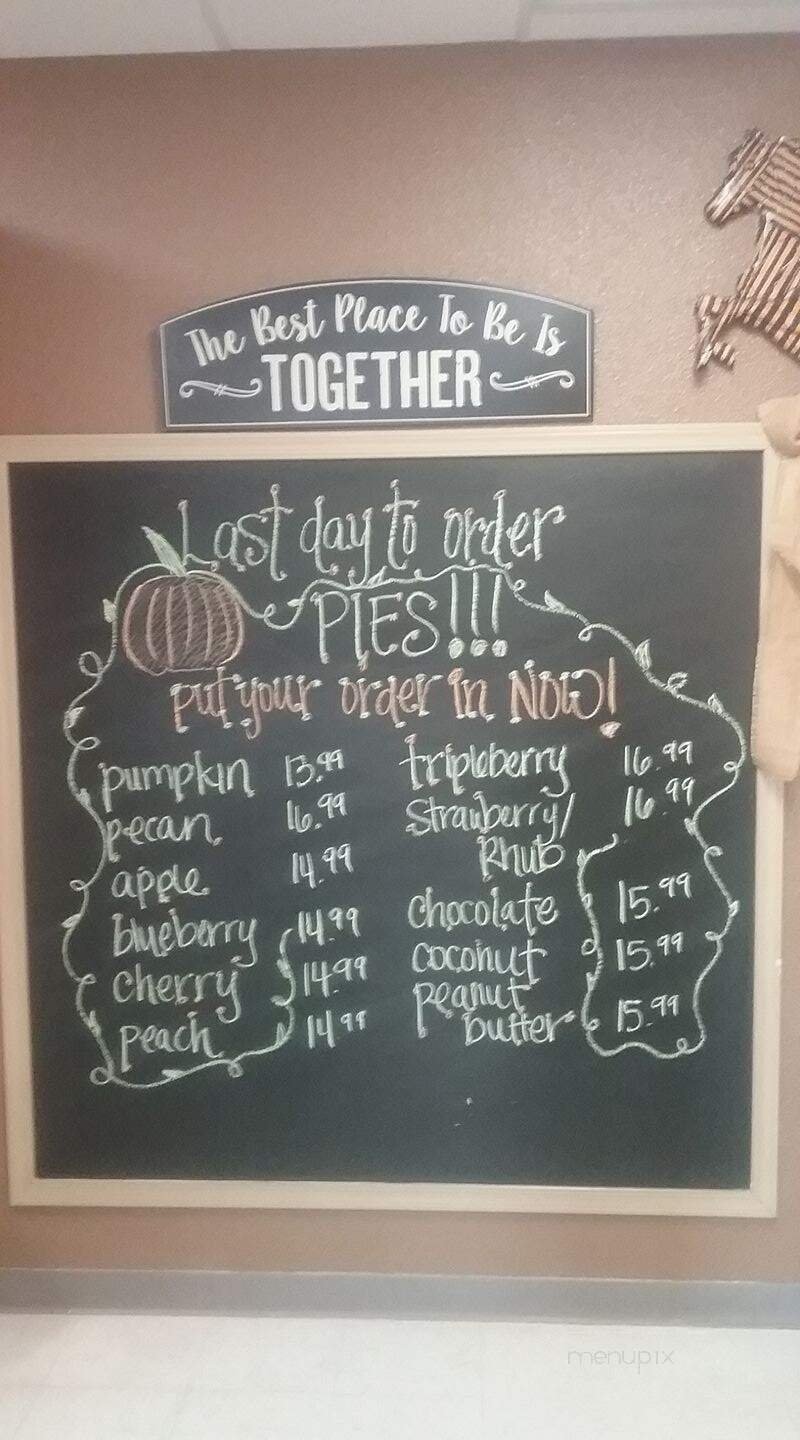 The Best Place To Be Is
TOGETHER
Last day to order
PIES!!!
put your order in NOW!
pumpkin 13.99
pecan 16.99
apple 14.99
blueberry 14.99
cherry 14.99
peach 14.99
tripleberry 16.99
Strawberry/ 16.99
Rhub
chocolate 15.99
coconut 15.99
peanut
butter 15.99
menupix